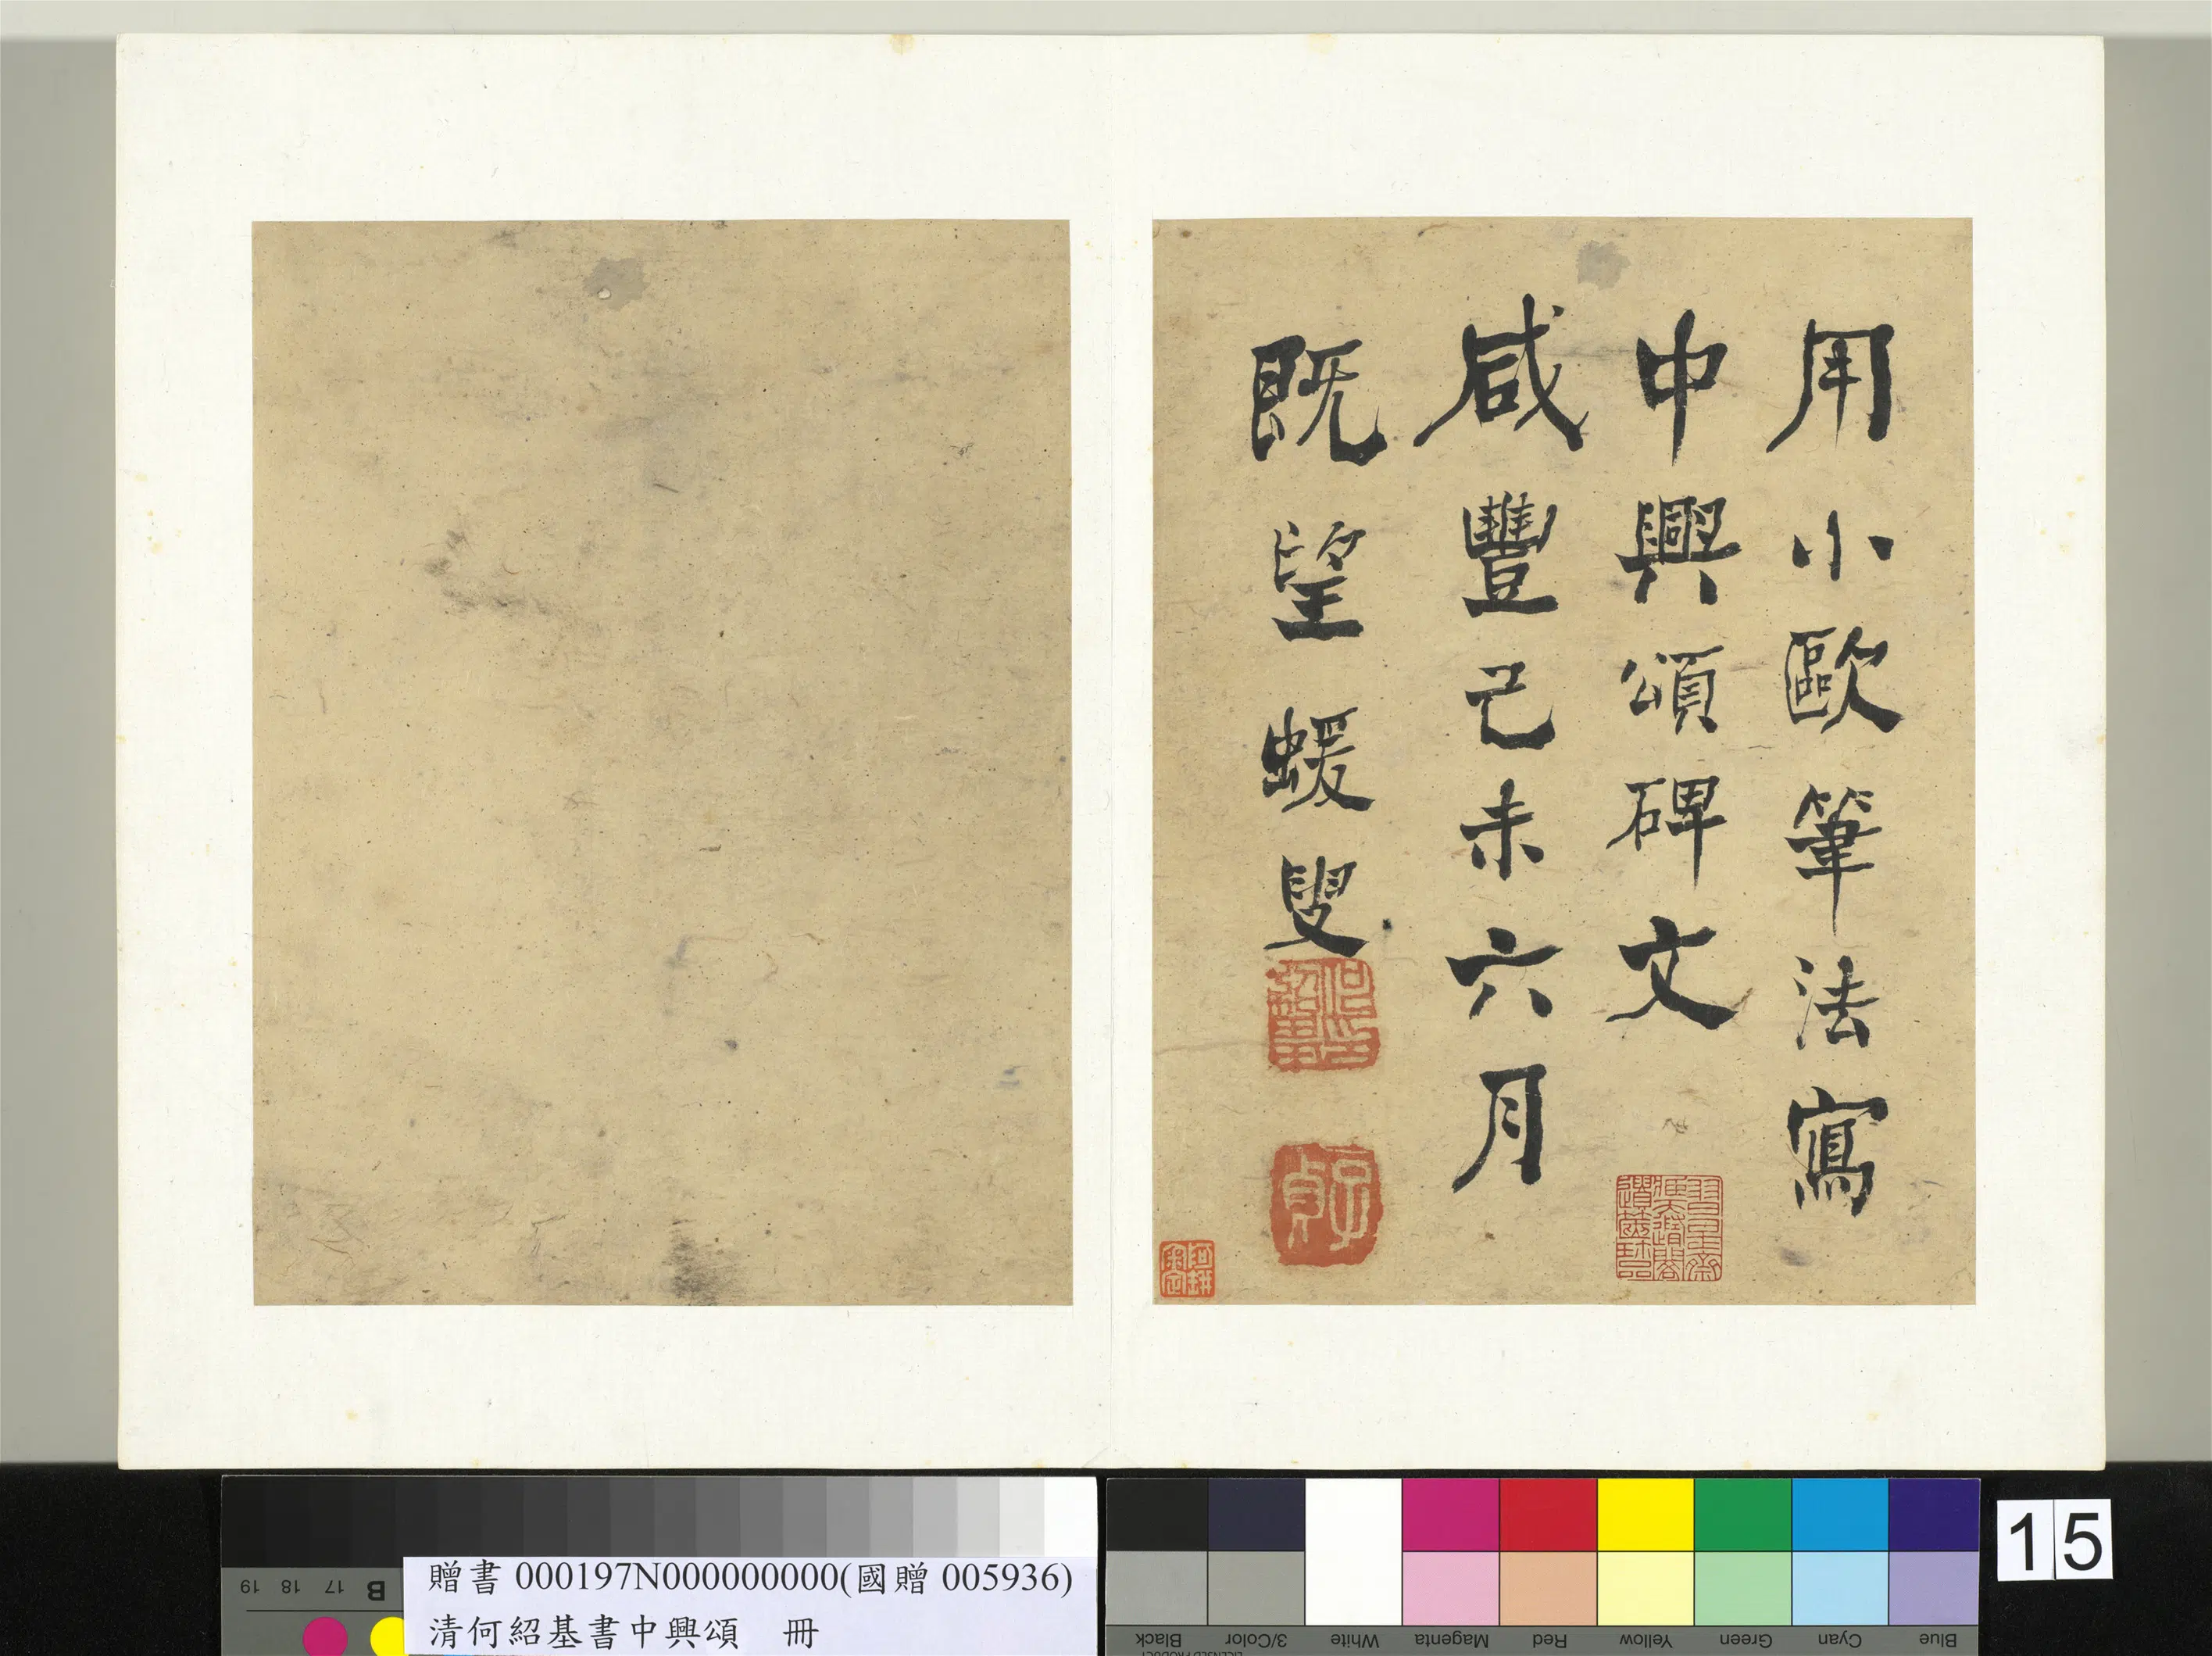 用小歐筆法寫
中興頌碑文
咸豐己未六月
既望蝯叟
何紹基印
子貞
贈書 000197N000000000(國贈 005936)
清何紹基書中興頌 冊
15
19 18 17 B
Black 3/Color White Magenta Red Yellow Green Cyan Blue